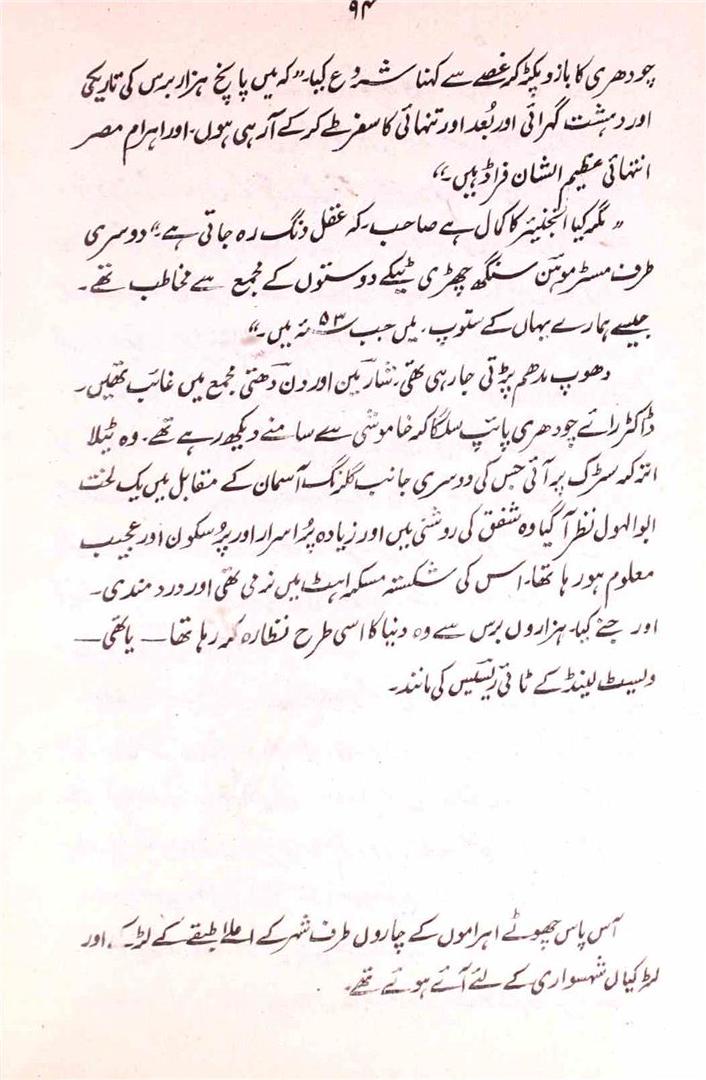 ۹۴
چودھری کا بازو پکڑ کر غصے سے کہنا شروع کیا۔ ”کہ میں پانچ ہزار برس کی تاریکی
اور دہشت گہرائی اور بُعد اور تنہائی کا سفر طے کر کے آ رہی ہوں۔ اور اہرام مصر
انتہائی عظیم الشان فراڈ ہیں۔“
”مگر کیا انجنیئر کا کمال ہے صاحب۔ کہ عقل دنگ رہ جاتی ہے۔“ دوسری
طرف مسٹر موہن سنگھ چھڑی ٹیکے دوستوں کے مجمع سے مخاطب تھے۔
جیسے ہمارے یہاں کے ستوپ۔ میں جب ۵۳ء میں۔“
دھوپ مدھم پڑتی جا رہی تھی۔ شارمین اور دن دھتی مجمع میں غائب تھیں۔
ڈاکٹر رائے چودھری پائپ سلگا کر خاموشی سے سامنے دیکھ رہے تھے۔ وہ ٹیلا
اتر کر سڑک پر آئی جس کی دوسری جانب گلرنگ آسمان کے مقابل میں یک لخت
ابوالہول نظر آ گیا وہ شفق کی روشنی میں اور زیادہ پُراسرار اور پُرسکون اور عجیب
معلوم ہو رہا تھا۔ اس کی شکستہ مسکراہٹ میں نرمی تھی اور دردمندی۔
اور جئے کیا۔ ہزاروں برس سے وہ دنیا کا اسی طرح نظارہ کر رہا تھا — یا تھی —
ویسٹ لینڈ کے ٹائی ریسیس کی مانند۔
آس پاس چھوٹے اہراموں کے چاروں طرف شہر کے اعلیٰ طبقے کے لڑکے اور
لڑکیاں شہسواری کے لئے آئے ہوئے تھے۔